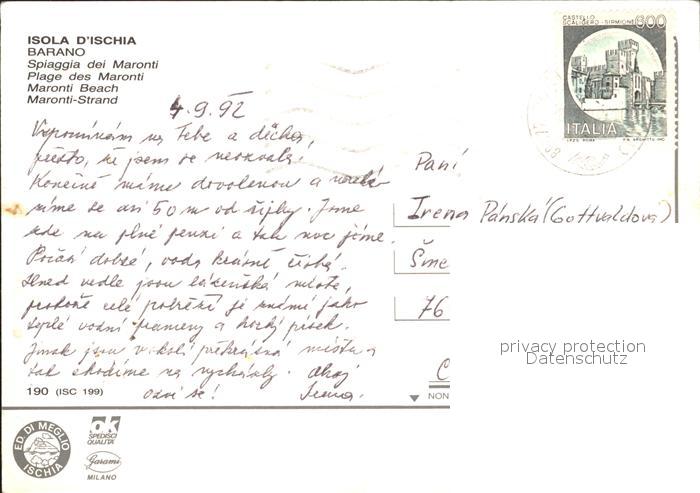 ISOLA D'ISCHIA
BARANO
Spiaggia dei Maronti
Plage des Maronti
Maronti Beach
Maronti-Strand
CASTELLO
SCALIGERO - SIRMIONE
600
ITALIA
4.9.92
Vzpomínám na Tebe a děcka,
přesto, že jsem se neozvala.
Konečně máme dovolenou a
níme se asi 50 m od
zde na plné penzi a tak moc jíme.
Počasí dobré, voda krásně čistá.
Hned vedle jsou lázeňská místa,
protože celé pobřeží je známé jako
teplé vodní prameny a horký písek.
Jinak jsou v okolí překrásná místa a
tak chodíme na vycházky. Ahoj
ozvi se! Irena.
Paní
Irena Pánská (Gottvaldova)
Šme
76
190 (ISC 199)
NON
privacy protection
Datenschutz
ED. DI MEGLIO
ISCHIA
ok
SPEDISCI
QUALITA'
Garami
MILANO